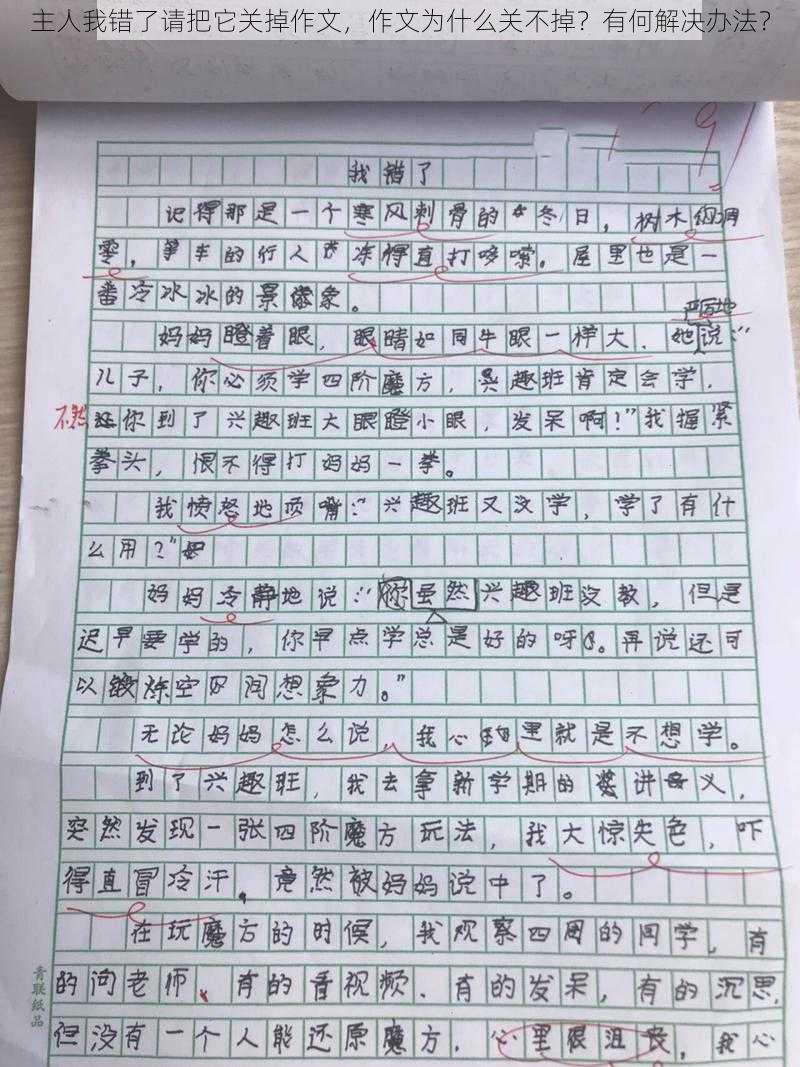 主人我错了请把它关掉作文，作文为什么关不掉？有何解决办法？
91
我错了
记得那是一个寒风刺骨的冬日，树木凋
零，的行人冻得直打哆嗦。屋里也是一
番冷冰冰的景象。
严厉地
妈妈瞪着眼，眼睛如同牛眼一样大，她说：“
儿子，你必须学四阶魔方，兴趣班肯定会学，
不然你到了兴趣班大眼瞪小眼，发呆啊！”我握紧
拳头，恨不得打妈妈一拳。
我愤怒地顶嘴：“兴趣班又没学，学了有什
么用？”
妈妈冷静地说：“你虽然兴趣班没教，但是
迟早要学的，你早点学总是好的呀。再说还可
以锻炼空间想象力。”
无论妈妈怎么说，我心里就是不想学。
到了兴趣班，我去拿新学期的讲义，
突然发现一张四阶魔方玩法，我大惊失色，吓
得直冒冷汗，竟然被妈妈说中了。
在玩魔方的时候，我观察四周的同学，有
的问老师、有的看视频，有的发呆，有的沉思，
但没有一个人能还原魔方，心里很沮丧，我心
青联纸品